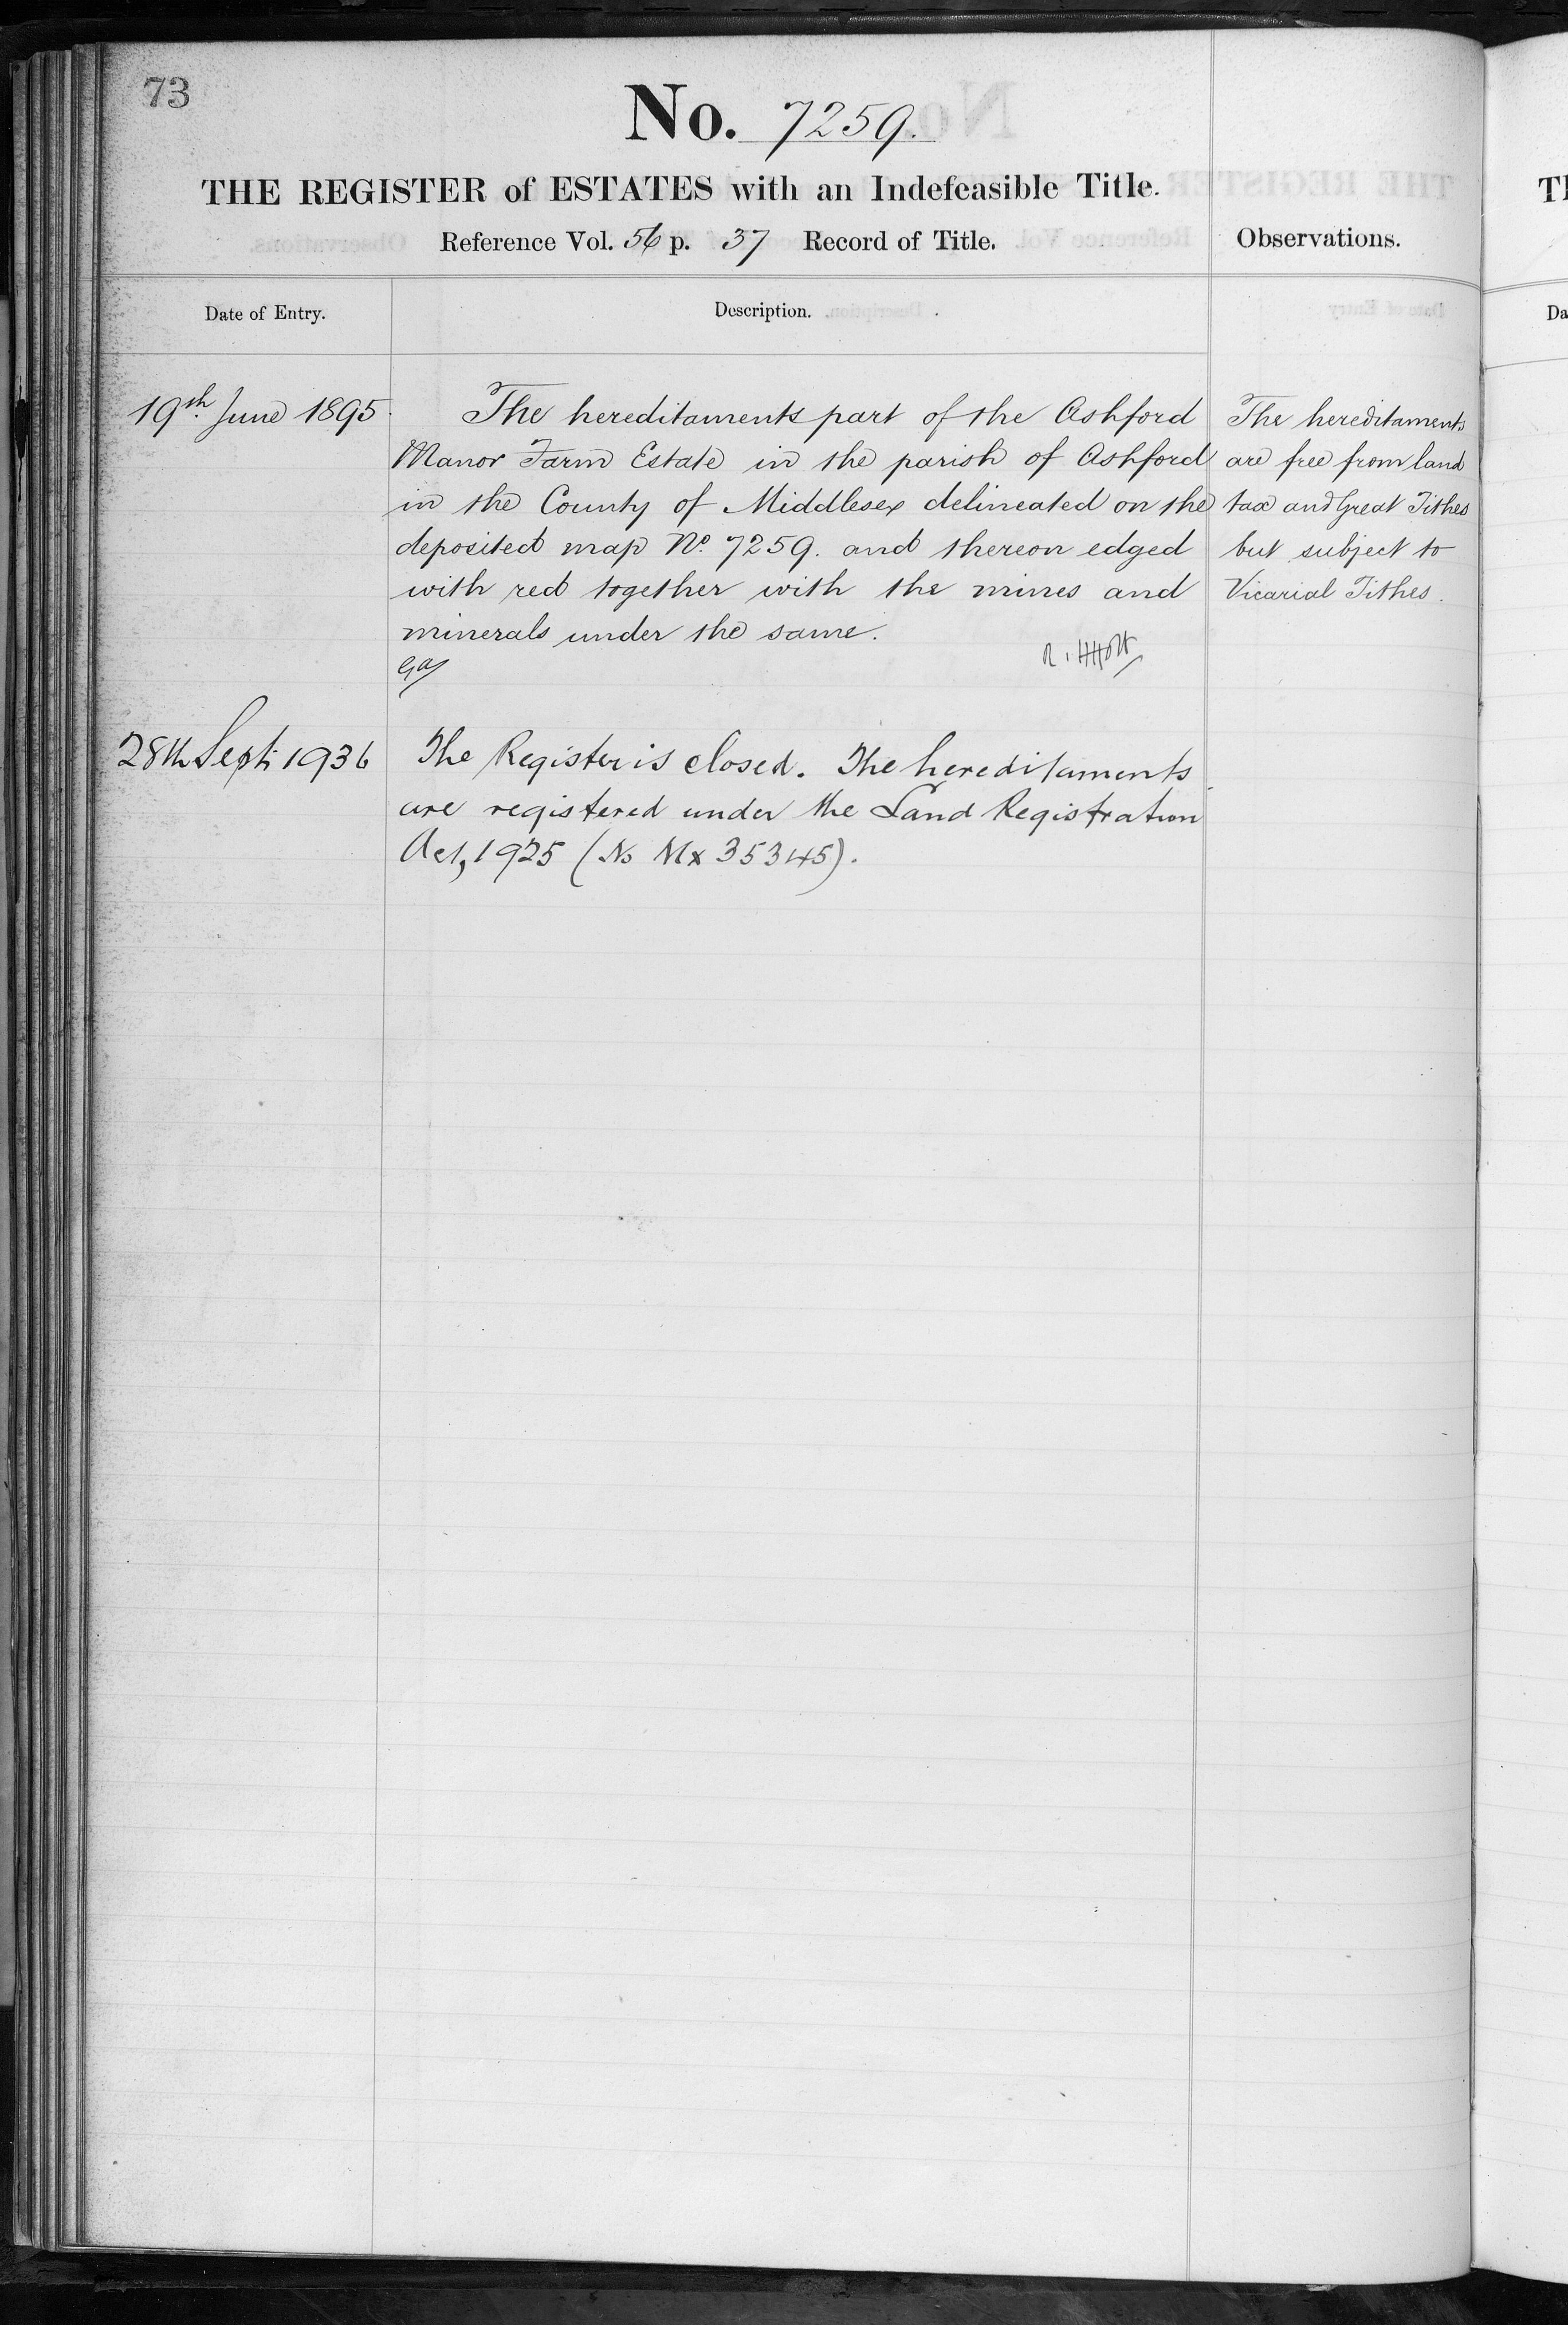 73
No. 7259.
THE REGISTER of ESTATES with an Indefeasible Title.
Reference Vol. 56 p. 37 Record of Title.
Observations.
Date of Entry.
Description.
19th June 1895.
The hereditaments part of the Ashford
Manor Farm Estate in the parish of Ashford
in the County of Middlesex delineated on the
deposited map No. 7259. and thereon edged
with red together with the mines and
minerals under the same.
The hereditaments
are free from land
tax and Great Tithes
but subject to
Vicarial Tithes.
28th Sept: 1936
The Register is closed. The hereditaments
are registered under the Land Registration
Act, 1925 (No Mx 35345).